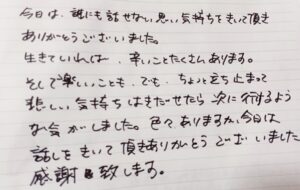 今日は、誰にも話せない思い気持ちをきいて頂き
ありがとうございました。
生きていれば、辛いことたくさんあります。
そして楽しいことも、でも、ちょっと立ち止まって
悲しい気持ちはきだせたら次に行けるよう
な気がしました。色々ありますが、今日は
話しをきいて頂きありがとうございました
感謝致します。